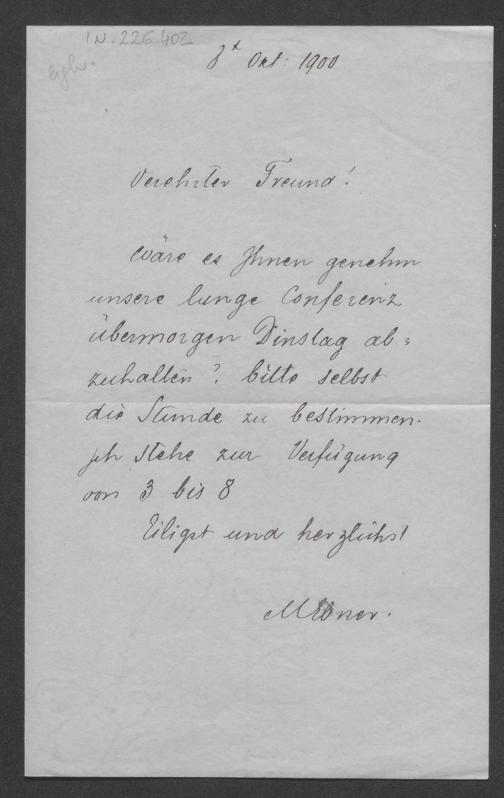 I.N. 226.402
egh.
8t Okt: 1900
Verehrter Freund!
Wäre es Ihnen genehm
unsere lange Conferenz
übermorgen Dinstag ab-
zuhalten? bitte selbst
die Stunde zu bestimmen.
Ich stehe zur Verfügung
von 3 bis 8
Eiligst und herzlichst
MEbner.